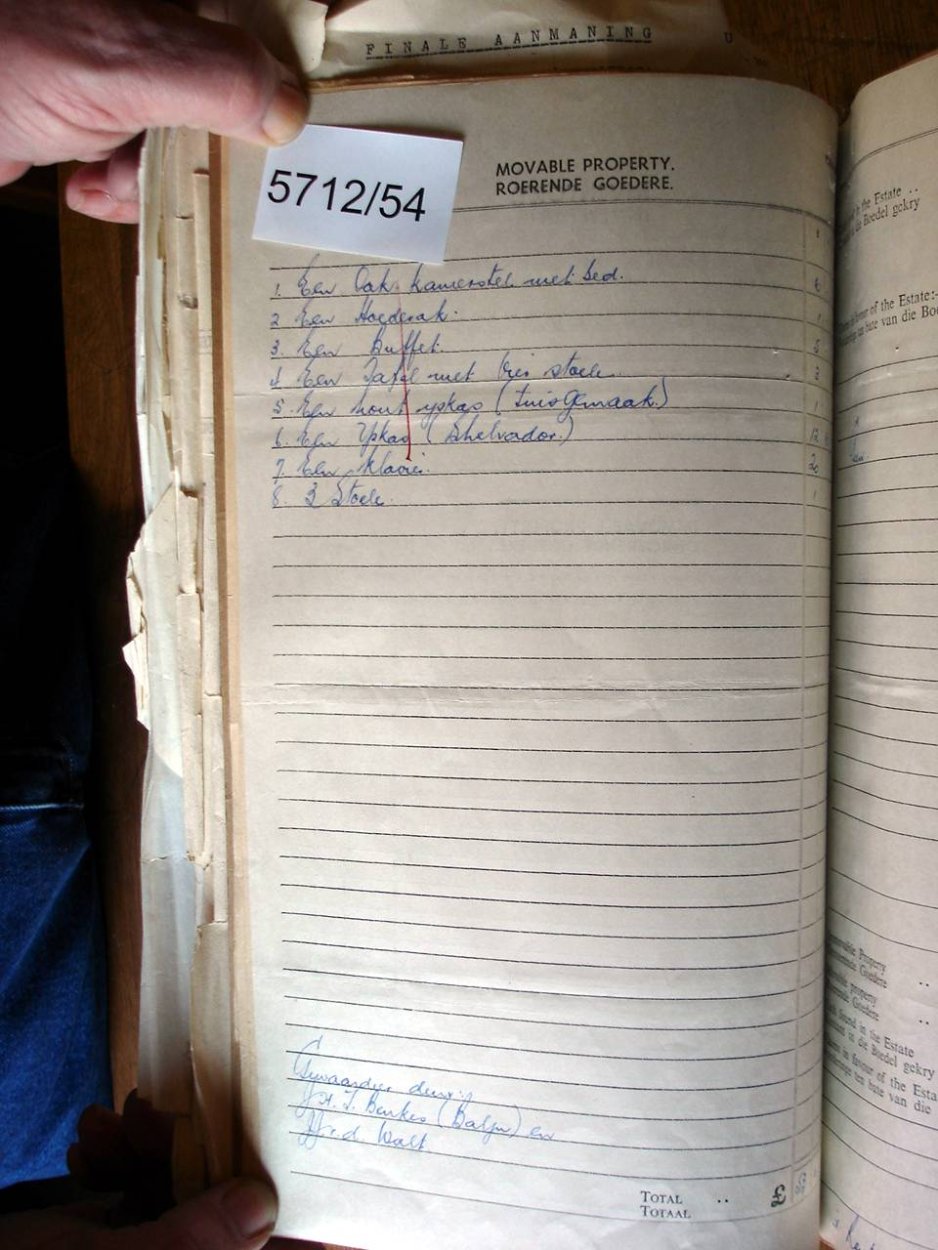 FINALE AANMANING U
5712/54
MOVABLE PROPERTY.
ROERENDE GOEDERE.
1. Een Oak kamerstel met bed. 6
2 Een Hoederak.
3. Een Buffet. 5
4 Een Tafel met stoele 2
5. Een hout yskas (tuisgemaak) 1
6. Een Yskas (Shelvador) 12
7. Een Klavier. 20
8. 3 Stoele. 1
Gewaardeer deur:
en
v.d. Walt
TOTAL .. £
TOTAAL
in the Estate ..
die Boedel gekry
favour of the Estate:-
ten bate van die Boe
Property
Goedere ..
property
Goedere ..
found in the Estate
in die Boedel gekry
in favour of the Esta
ten bate van die